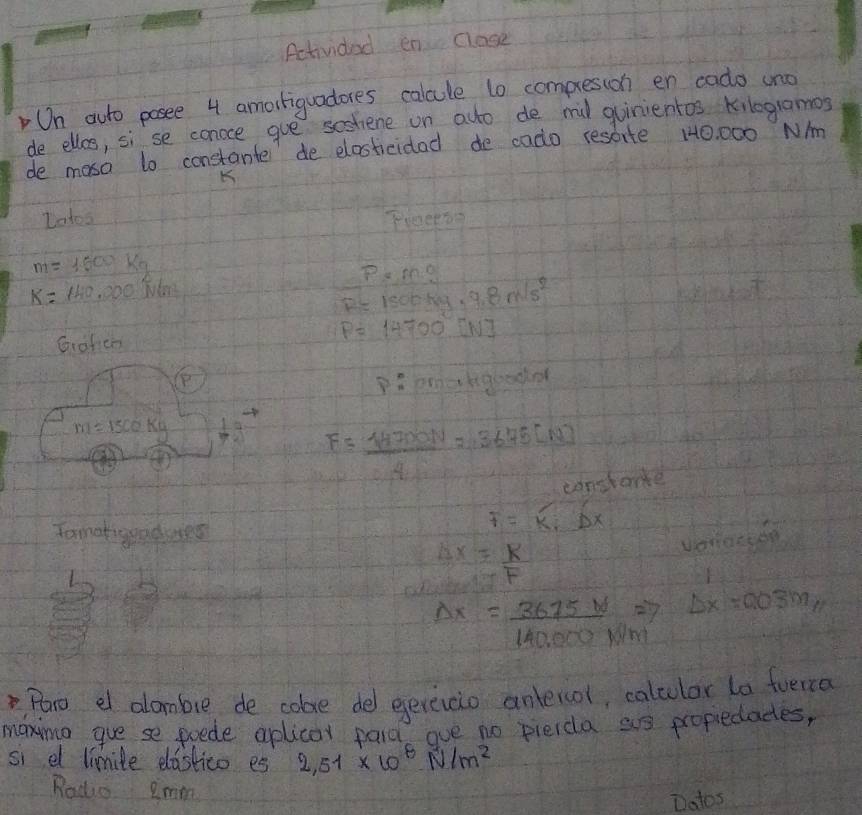 Actividad en clase
Un auto posee 4 amortiguadores calcule la compresion en cada uno
de ellos, si se conoce que sostiene un auto de mil quinientos kilogramos
de masa la constante de elasticidad de cada resorte 140.000 N/m
K
Datos
Proceso
m = 1500 Kg
P = m g
K = 140.000 N/m
P = 1500 kg . 9.8 m/s²
P = 14700 [N]
Grafica
P
P: amortiguador
m = 1500 Kg
F = 14700N / 4 = 3675 [N]
constante
F = K . Δx
Δx = K / F
variación
Δx = 3675 N / 140.000 N/m => Δx = 0.03m
Para el alambre de cobre del ejercicio anterior, calcular la fuerza
maxima que se puede aplicar para que no pierda sus propiedades,
si el limite elástico es 2,51 x 10⁸ N/m²
Radio 2mm
Datos